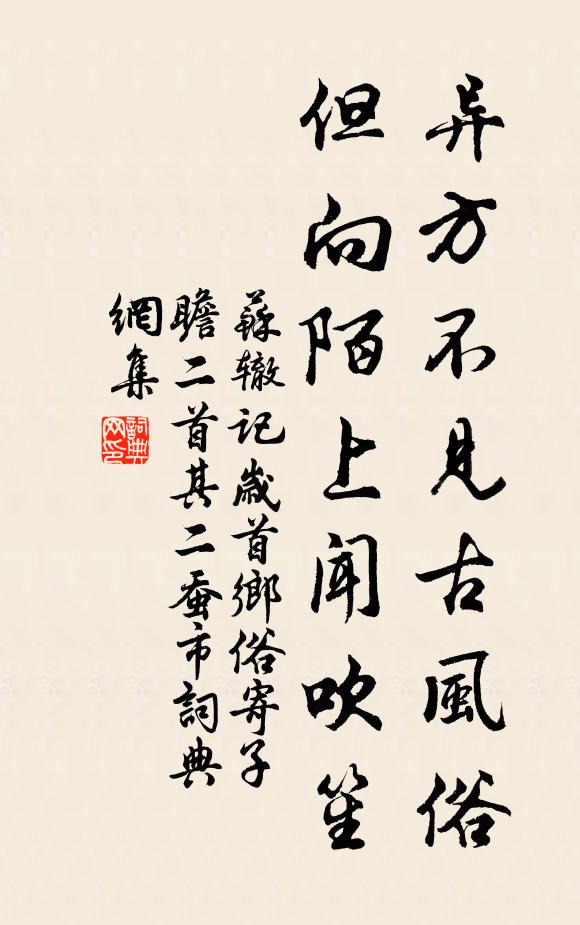 异方不見古風俗
但向陌上聞吹笙
蘇辙記歲首鄉俗寄子
瞻二首其二蚕市詞典
網集
詞典
网印